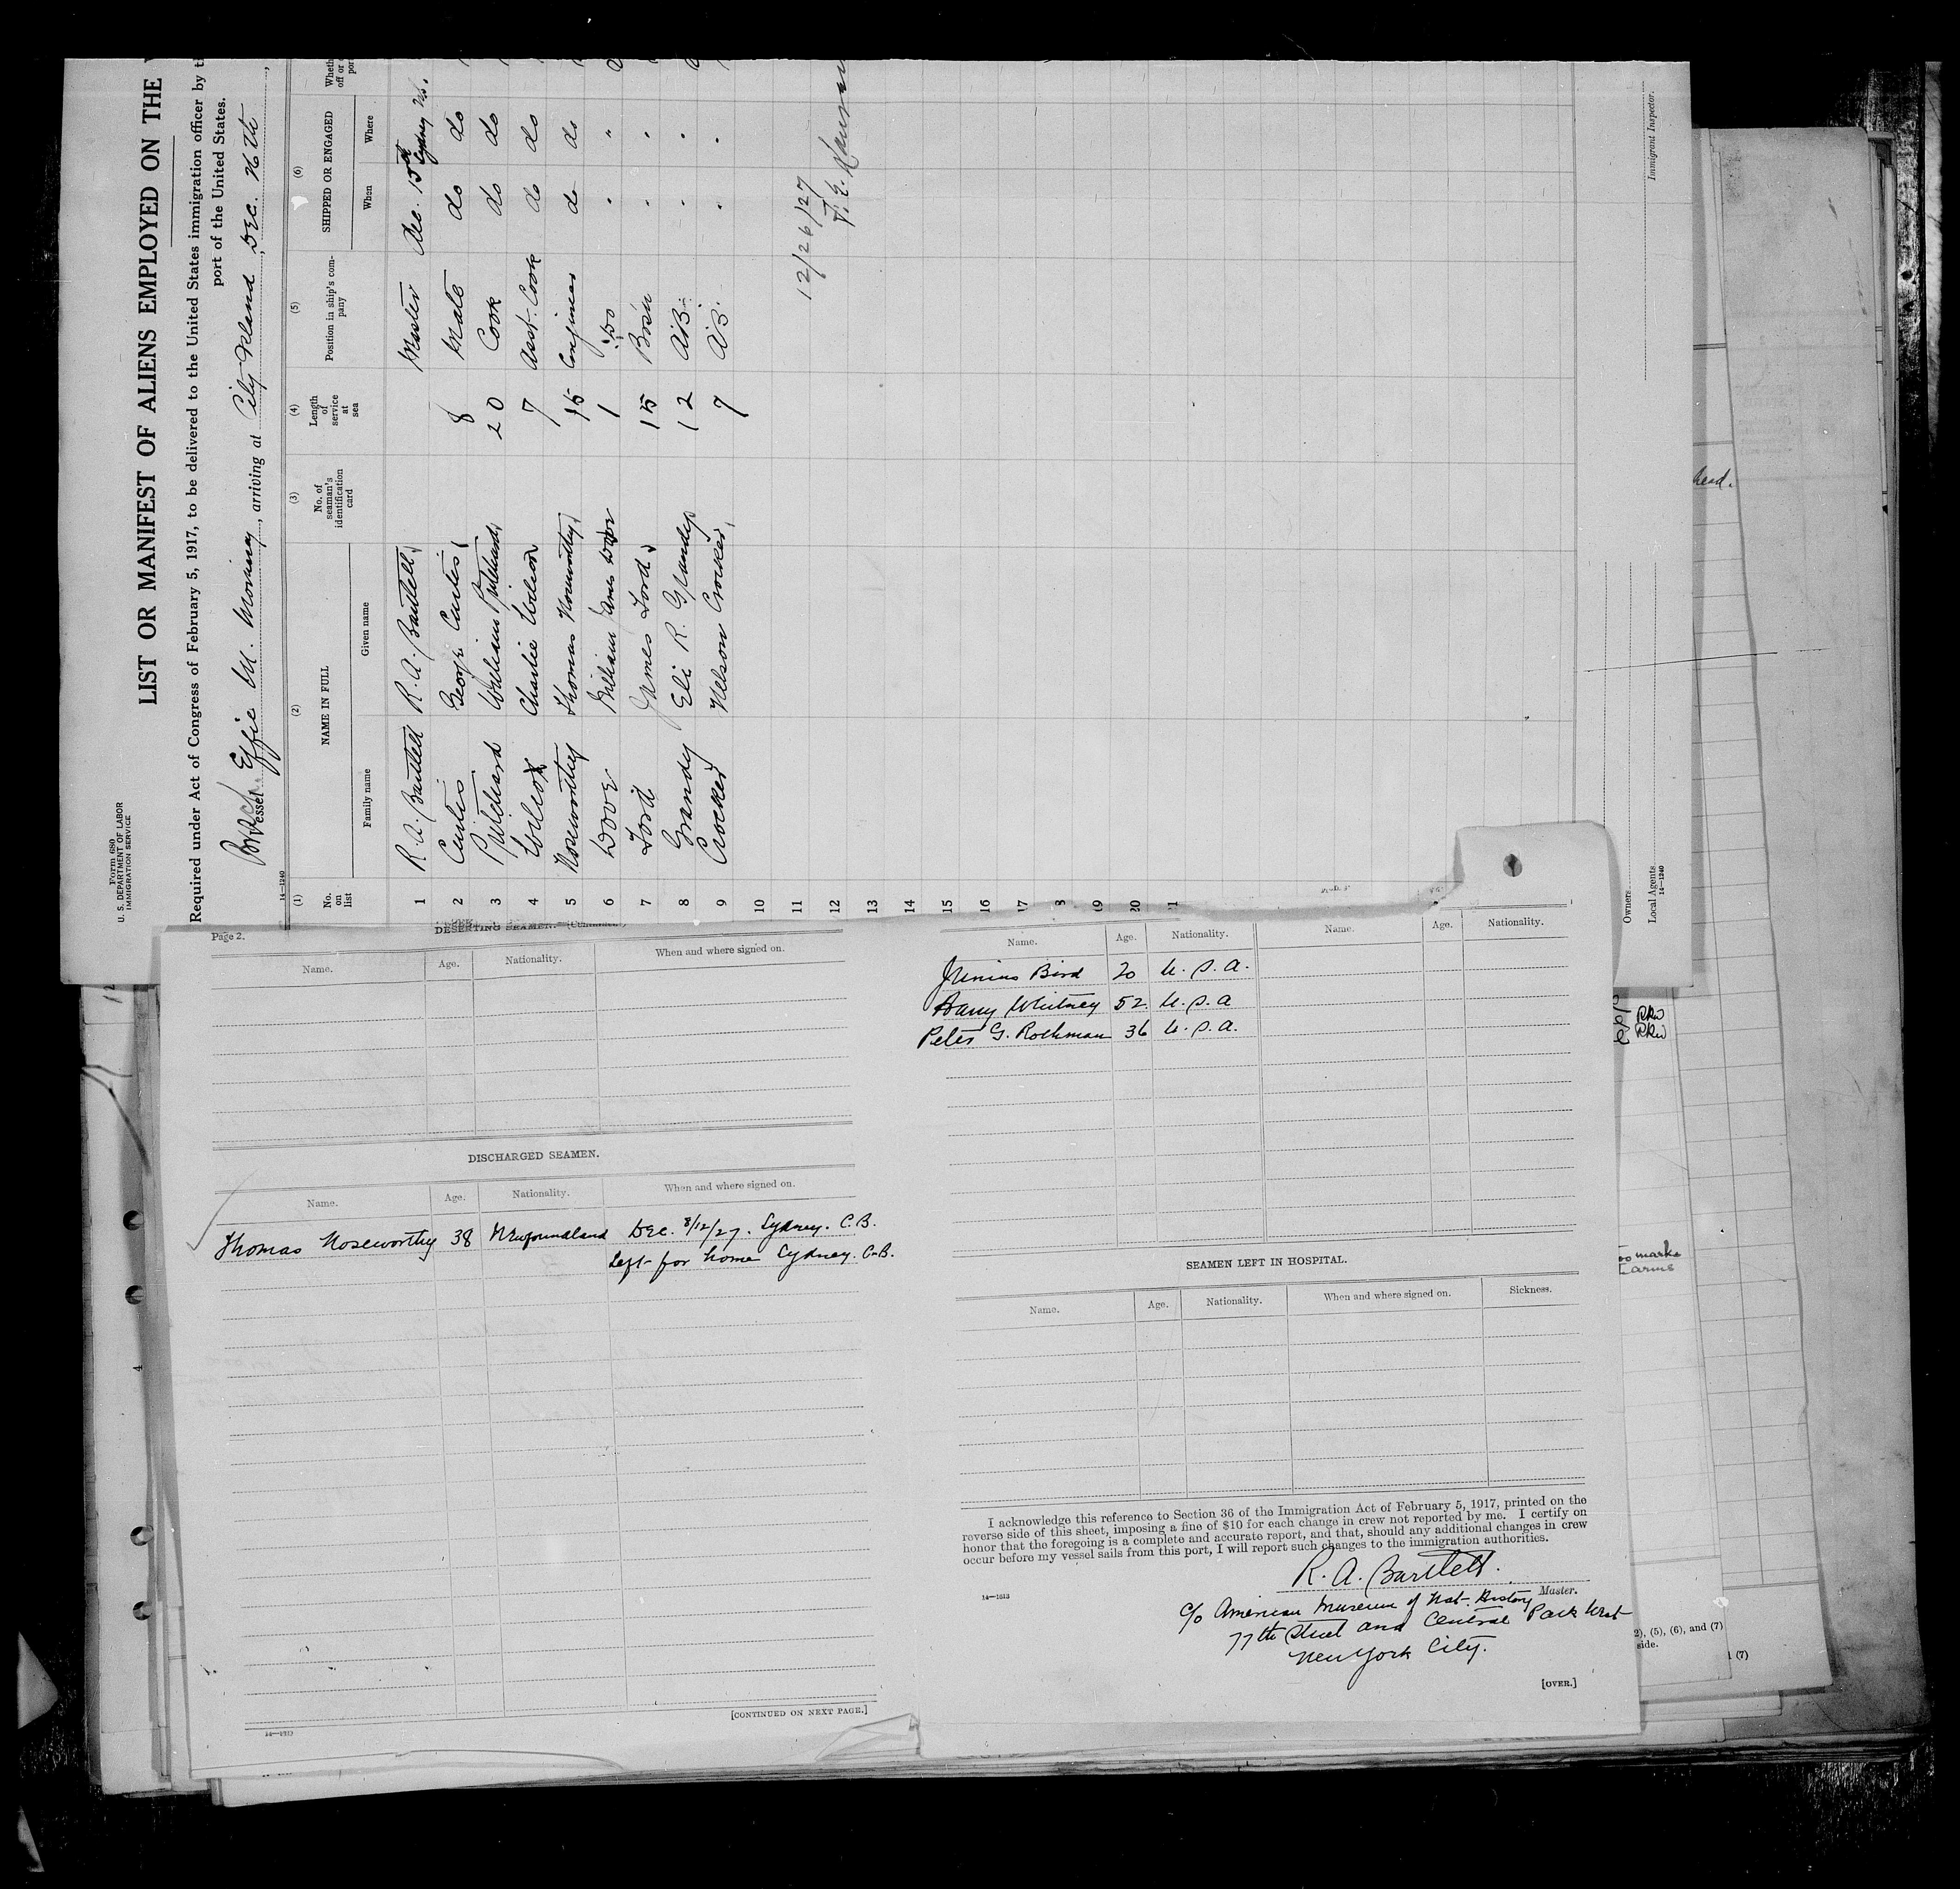 Form 680
U. S. DEPARTMENT OF LABOR
IMMIGRATION SERVICE
LIST OR MANIFEST OF ALIENS EMPLOYED ON THE
Required under Act of Congress of February 5, 1917, to be delivered to the United States immigration officer by
port of the United States.
Vessel Effie M. Morrissey, arriving at City Island, Dec. 26th,
14—1240
(1) (2) (3) (4) (5) (6)
No. on list
NAME IN FULL
Family name Given name
No. of seaman's identification card
Length of service at sea
Position in ship's company
SHIPPED OR ENGAGED
When Where
1 R. A. Bartlett R. A. Bartlett Master Dec. 15th Sydney N.S.
2 Curtis George Curtis 8 Mate do do
3 Pritchard William Pritchard 20 Cook do do
4 Wilcox Charlie Wilcox 7 Asst. Cook do do
5 Noseworthy Thomas Noseworthy 15 Engineer do do
6 Dove William James Dove 1 Do " "
7 Lord James Lord 15 Bos'n " "
8 Grandy Eli R. Grandy 12 A.B. " "
9 Crocker Nelson Crocker 7 A.B. " "
10
11
12
13
14
15
16
17
18
19
20
21
12/26/27
Immigrant Inspector.
Owners
Local Agents
14—1240
head.
Page 2.
DESERTING SEAMEN.
Name. Age. Nationality. When and where signed on.
DISCHARGED SEAMEN.
Name. Age. Nationality. When and where signed on.
Thomas Noseworthy 38 Newfoundland Dec. 8/12/27. Sydney. C.B.
Left for home Sydney. C.B.
[CONTINUED ON NEXT PAGE.]
Name. Age. Nationality. Name. Age. Nationality.
Junius Bird 20 U.S.A.
Harry Whitney 52 U.S.A
Peter G. Rothman 36 U.S.A.
SEAMEN LEFT IN HOSPITAL.
Name. Age. Nationality. When and where signed on. Sickness.
I acknowledge this reference to Section 36 of the Immigration Act of February 5, 1917, printed on the
reverse side of this sheet, imposing a fine of $10 for each change in crew not reported by me. I certify on
honor that the foregoing is a complete and accurate report, and that, should any additional changes in crew
occur before my vessel sails from this port, I will report such changes to the immigration authorities.
R. A. Bartlett.
14—1613
Master.
c/o American Museum of Nat. History
77th Street and Central Park West
New York City.
[OVER.]
2), (5), (6), and (7)
side.
(7)